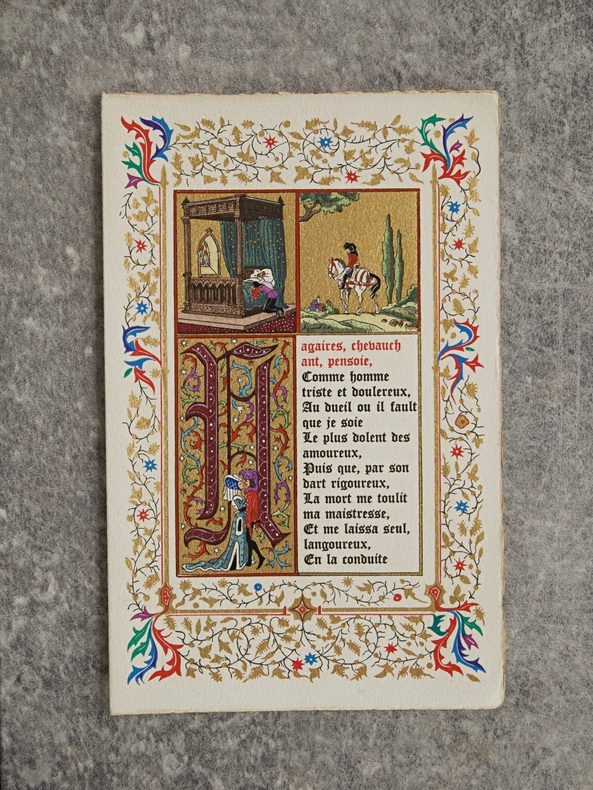 N
agaires, chevauch
ant, pensoie,
Comme homme
triste et doulereux,
Au dueil ou il fault
que je soie
Le plus dolent des
amoureux,
Puis que, par son
dart rigoureux,
La mort me toulit
ma maistresse,
Et me laissa seul,
langoureux,
En la conduite